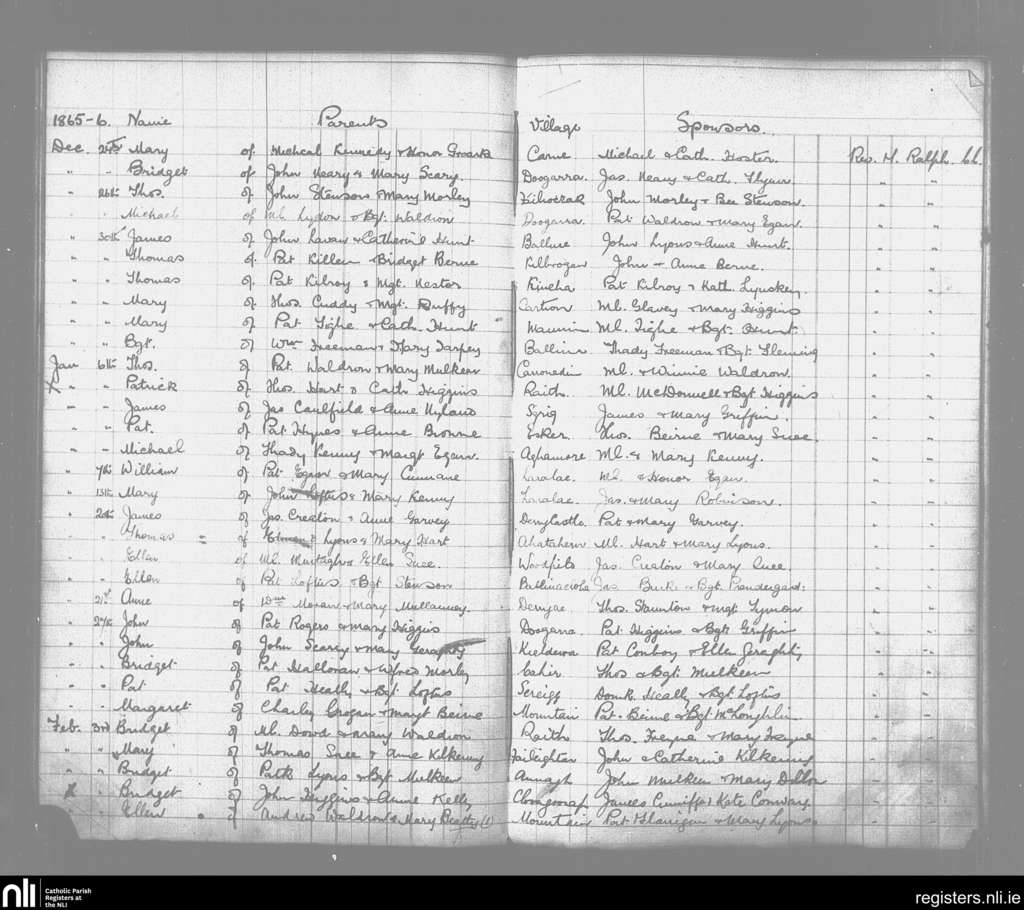 1865-6. Name Parents Village Sponsors.
Dec. Mary of Micheal Kennedy & Honor Groark Carne Michael & Cath. Foster. Rev. M. Ralph. CC.
" " Bridget of John Neary & Mary Scary. Doogarra. Jas. Neary & Cath. Flynn. " "
" 26th Thos. of John Stenson & Mary Morley John Morley & Bee Stenson. " "
" " Michael of Ml. Lydon & Bgt. Waldron Doogarra. Pat Waldron & Mary Egan. " "
" 30th James of John Lavan & Catherine Hunt Ballure John Lyons & Anne Hunt. " "
" " Thomas of Pat Killeen & Bridget Berne Kilbrogan John & Anne Berne. " "
" " Thomas of Pat Kilroy & Mgt. Nestor Pat Kilroy & Kath. Lynskey. " "
" " Mary of Thos. Cuddy & Mgt. Duffy Cartron Ml. Glavey & Mary Higgins " "
" " Mary of Pat Tighe & Cath. Hunt Mannin Ml. Tighe & Bgt. Hunt. " "
" " Bgt. of Wm Freeman & Mary Tarpey Thady Freeman & Bgt. Fleming " "
Jan 6th Thos. of Pat. Waldron & Mary Mulkeen Ml. & Winnie Waldron. " "
X " " Patrick of Thos. Hart & Cath Higgins Raith Ml. McDonnell & Bgt Higgins " "
" " James of Jas Caulfield & Anne Hyland James & Mary Griffin. " "
" " Pat. of Pat Hynes & Anne Browne Esker. Thos. Beirne & Mary Snee. " "
" " Michael of Thady Kenny & Margt Egan. Aghamore Ml. & Mary Kenny. " "
" 7th William of Pat Egan & Mary Cunnane Ml. & Honor Egan. " "
" 13th Mary of John Loftus & Mary Kenny Jas. & Mary Robinson. " "
" 20th James of Jas. Creaton & Anne Garvey DerryCastle Pat & Mary Garvey. " "
" " Thomas = of Lyons & Mary Hart Ml. Hart & Mary Lyons. " "
" " Ellen of Ml. Murtagh & Ellen Snee. Woodfield Jas. Creaton & Mary Snee. " "
" " Ellen of Pat Loftus & Bgt Stenson Jas. Burke & Bgt. Prendergast. " "
" 21st Anne of Moran & Mary Mullanney. Thos. Staunton & Mgt. Lyman " "
" 27th John of Pat Rogers & Mary Higgins Doogarra Pat Higgins & Bgt Griffin " "
" " John of John Scary & Mary Geraghty Pat Conboy & Ellen Geraghty " "
" " Bridget of Pat Halloran & Morley Cahir Thos & Bgt. Mulkeen " "
" " Pat of Pat Heally & Bgt. Loftus Domk. Heally & Bgt Loftus " "
" " Margaret of Charley Grogan & Margt Beirne Mountain Pat. Beirne & Bgt McLoughlin " "
Feb. 3rd Bridget of Ml. Dowd & Mary Waldron Raith Thos. Freyne & Mary Freyne " "
" " Mary of Thomas Snee & Anne Kilkenny John & Catherine Kilkenny " "
" " Bridget of Patk Lyons & Bgt Mulkeen Annagh John Mulkeen & Mary Dillon " "
X " Bridget of John Higgins & Anne Kelly James Cunniffe & Kate Conway " "
" " Ellen of Andrew Waldron & Mary Beatty (1) Mountain Pat Flanigan & Mary Lyons " "
nli Catholic Parish Registers at the NLI
registers.nli.ie